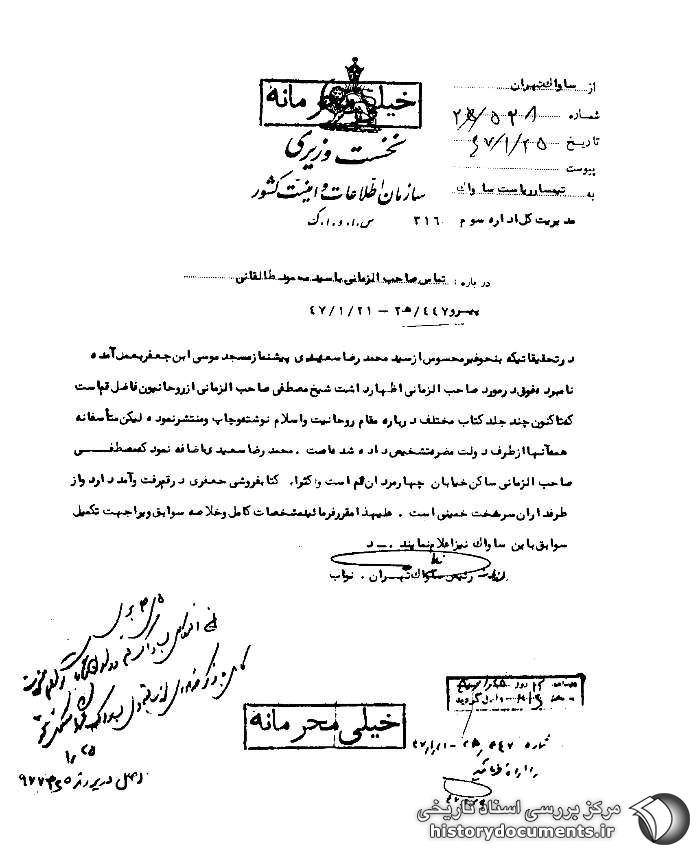 خیلی محرمانه
نخست وزیری
سازمان اطلاعات و امنیت کشور
از ساواک تهران
شماره
تاریخ ۴۷/۱/۲۵
پیوست
به تیمسار ریاست ساواک
مدیریت کل اداره سوم ۳۱۶ س.ا.و.ا.ک
درباره : تماس صاحب الزمانی با سید محمود طالقانی
پیرو ۴۴۷/ه۲ - ۴۷/۱/۲۱
در تحقیقاتیکه بنحو غیر محسوس از سید محمد رضا سعیدی پیشنماز مسجد موسی ابن جعفر بعمل آمده
نامبرده فوق در مورد صاحب الزمانی اظهار داشت شیخ مصطفی صاحب الزمانی از روحانیون فاضل قم است
که تاکنون چند جلد کتاب مختلف درباره مقام روحانیت و اسلام نوشته و چاپ و منتشر نموده لیکن متأسفانه
همه آنها از طرف دولت مضره تشخیص داده شده است . محمد رضا سعیدی اضافه نمود که مصطفی
صاحب الزمانی ساکن خیابان چهارمردان قم است و اکثراً کتابفروشی جعفری در قم رفت و آمد دارد و از
طرفداران سرسخت خمینی است . علیهذا مقرر فرمائید مشخصات کامل و خلاصه سوابق ویرا جهت تکمیل
سوابق باین ساواک نیز اعلام نمایند . د
رئیس ساواک تهران . نواب
خیلی محرمانه
مرکز بررسی اسناد تاریخی
historydocuments.ir